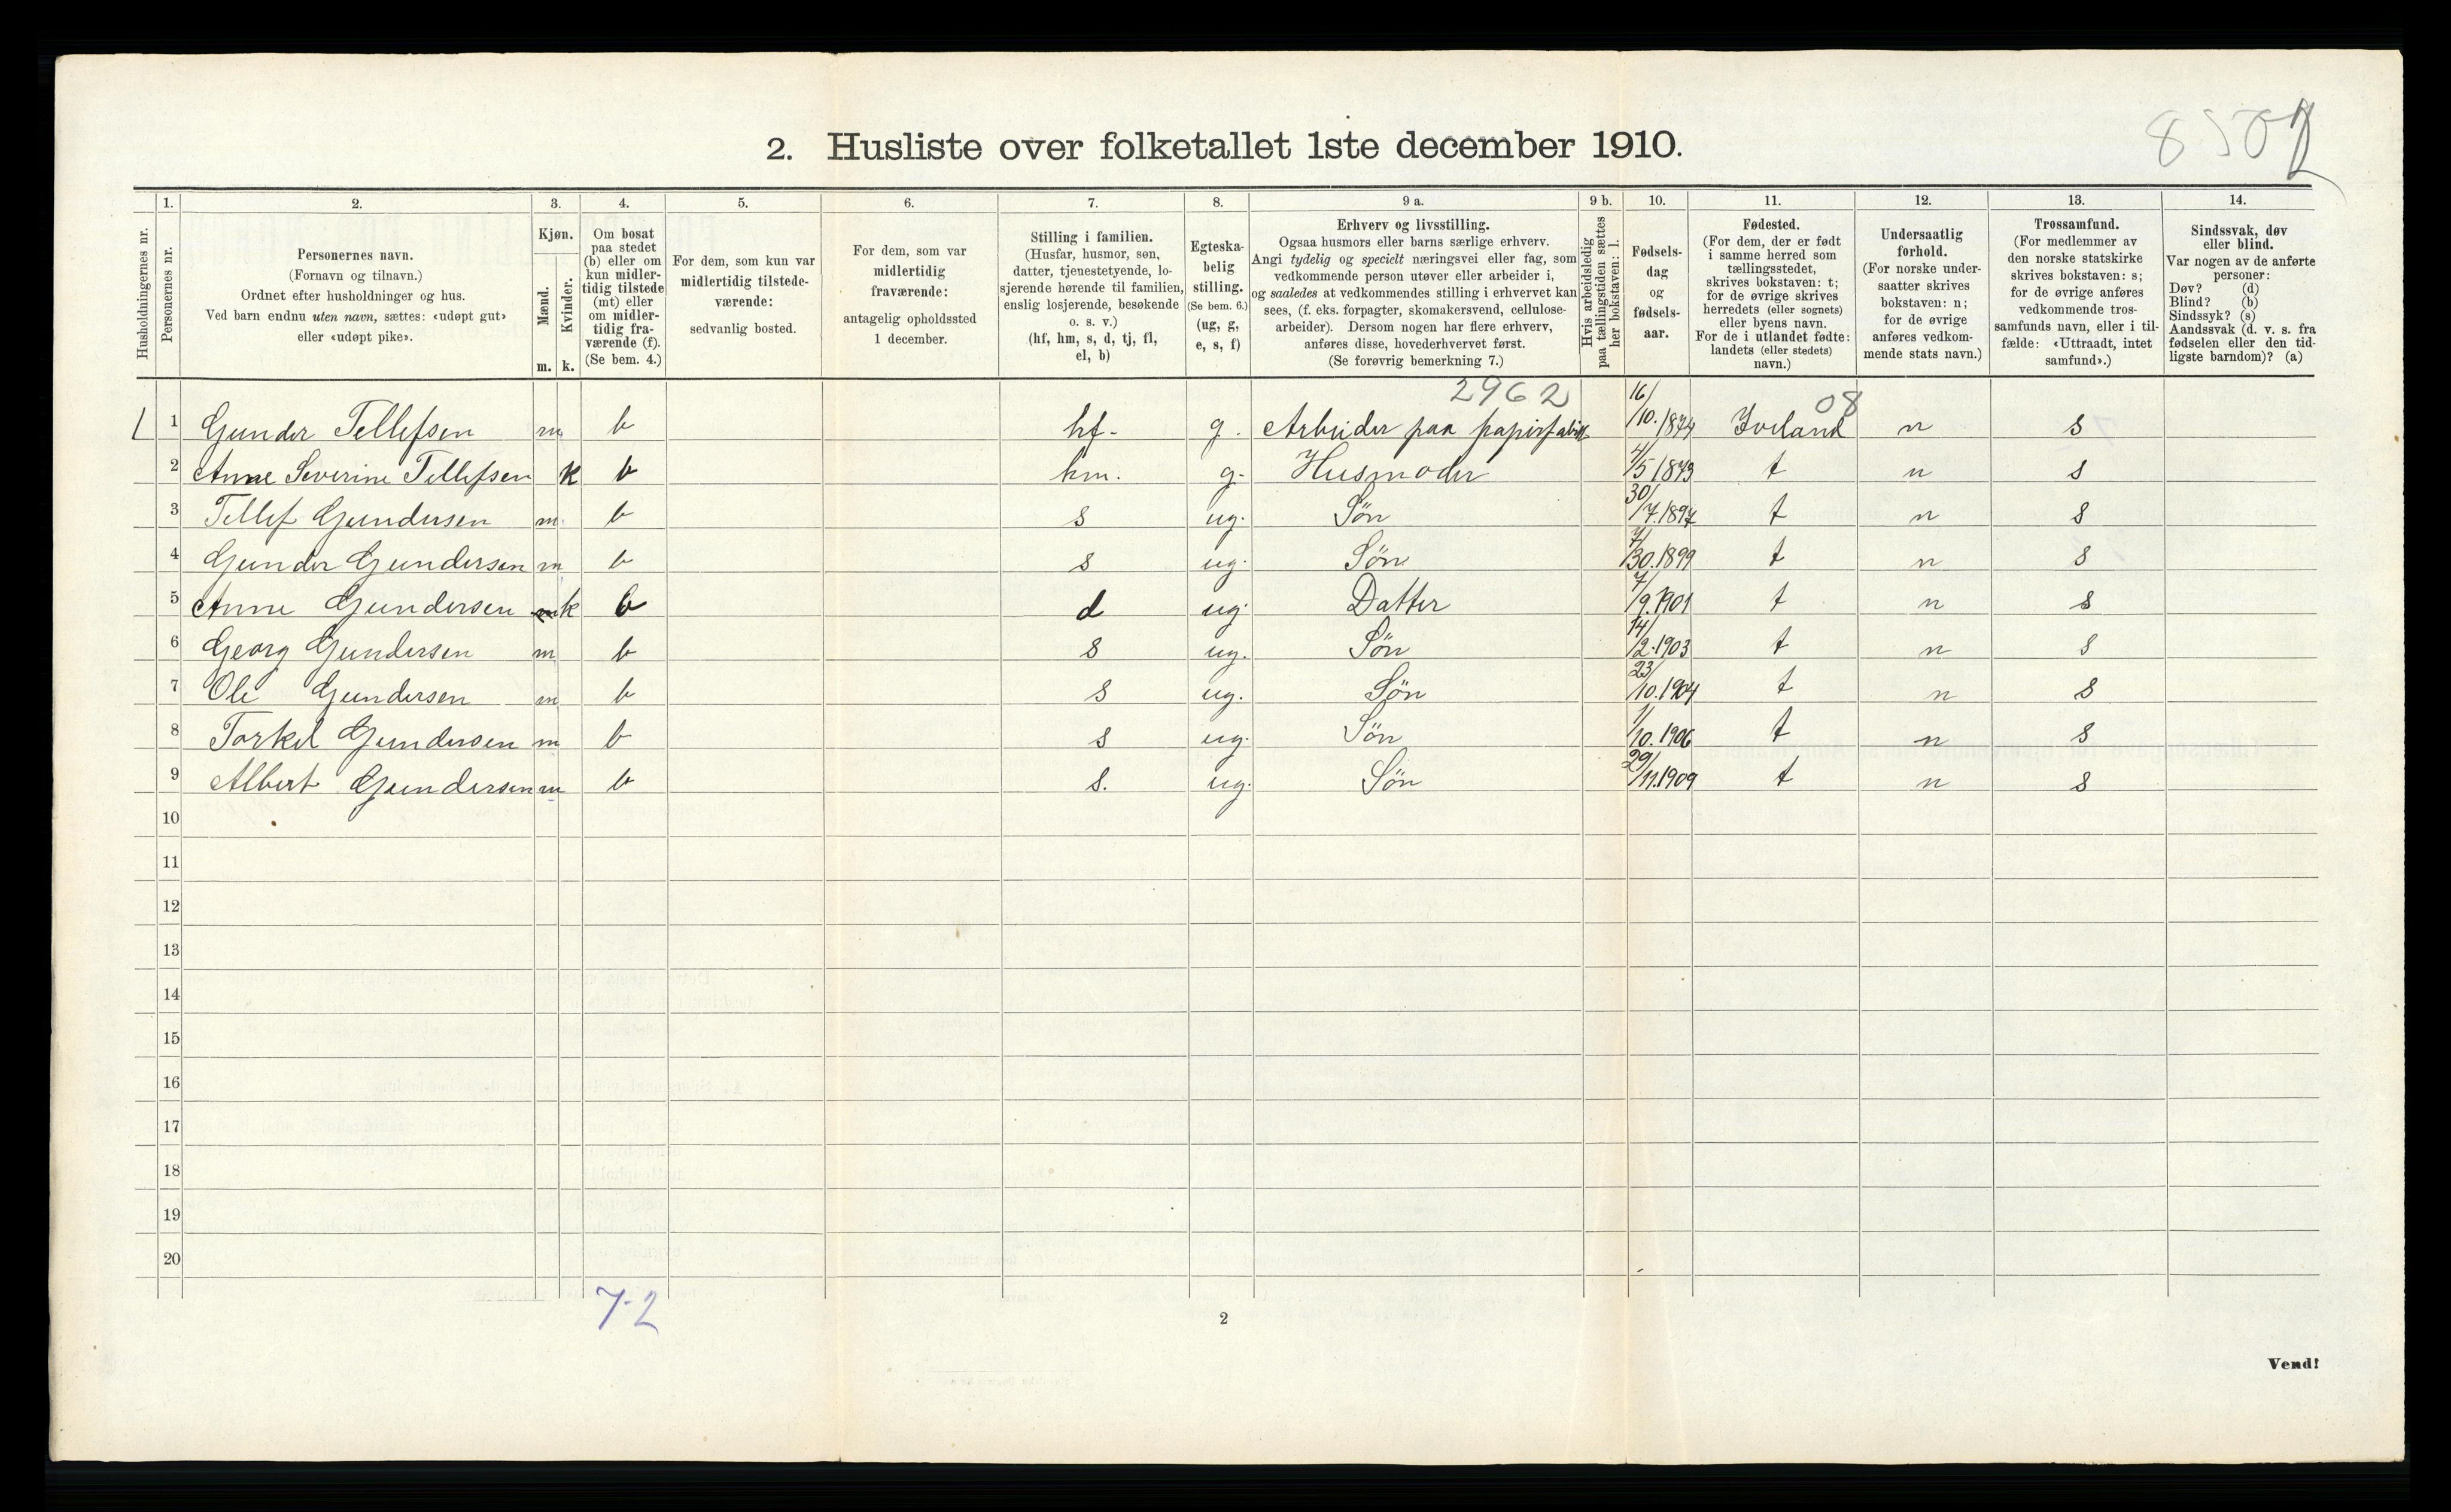 8502
2. Husliste over folketallet 1ste december 1910.
1. 2. 3. 4. 5. 6. 7. 8. 9 a. 9 b. 10. 11. 12. 13. 14.
Husholdningernes nr.
Personernes nr.
Personernes navn.
(Fornavn og tilnavn.)
Ordnet efter husholdninger og hus.
Ved barn endnu uten navn, sættes: «udøpt gut»
eller «udøpt pike».
Kjøn.
Mænd.
Kvinder.
m. k.
Om bosat
paa stedet
(b) eller om
kun midler-
tidig tilstede
(mt) eller
om midler-
tidig fra-
værende (f).
(Se bem. 4.)
For dem, som kun var
midlertidig tilstede-
værende:
sedvanlig bosted.
For dem, som var
midlertidig
fraværende:
antagelig opholdssted
1 december.
Stilling i familien.
(Husfar, husmor, søn,
datter, tjenestetyende, lo-
sjerende hørende til familien,
enslig losjerende, besøkende
o. s. v.)
(hf, hm, s, d, tj, fl,
el, b)
Egteska-
belig
stilling.
(Se bem. 6.)
(ug, g,
e, s, f)
Erhverv og livsstilling.
Ogsaa husmors eller barns særlige erhverv.
Angi tydelig og specielt næringsvei eller fag, som
vedkommende person utøver eller arbeider i,
og saaledes at vedkommendes stilling i erhvervet kan
sees, (f. eks. forpagter, skomakersvend, cellulose-
arbeider). Dersom nogen har flere erhverv,
anføres disse, hovederhvervet først.
(Se forøvrig bemerkning 7.)
Hvis arbeidsledig
paa tællingstiden sættes
her bokstaven: l.
Fødsels-
dag
og
fødsels-
aar.
Fødested.
(For dem, der er født
i samme herred som
tællingsstedet,
skrives bokstaven: t;
for de øvrige skrives
herredets (eller sognets)
eller byens navn.
For de i utlandet fødte:
landets (eller stedets)
navn.)
Undersaatlig
forhold.
(For norske under-
saatter skrives
bokstaven: n;
for de øvrige
anføres vedkom-
mende stats navn.)
Trossamfund.
(For medlemmer av
den norske statskirke
skrives bokstaven: s;
for de øvrige anføres
vedkommende tros-
samfunds navn, eller i til-
fælde: «Uttraadt, intet
samfund».)
Sindssvak, døv
eller blind.
Var nogen av de anførte
personer:
Døv? (d)
Blind? (b)
Sindssyk? (s)
Aandssvak (d. v. s. fra
fødselen eller den tid-
ligste barndom)? (a)
2962 08
1 1 Gunder Tellefsen m b hf. g. Arbeider paa papirfabrik 16/10.1874 Iveland n s
2 Anne Severine Tellefsen k b hm. g. Husmoder 4/5 1873 t n s
3 Tellef Gundersen m. b s ug. Søn 30/7.1897 t n s
4 Gunder Gundersen m b s ug. Søn 7/30.1899 t n s
5 Anne Gundersen m k b d ug. Datter 7/9.1901 t n s
6 Georg Gundersen m b s ug. Søn 14/2.1903 t n s
7 Ole Gundersen m b s ug. Søn 23/10.1904 t n s
8 Torkel Gundersen m b s ug. Søn 1/10.1906 t n s
9 Albert Gundersen m b s. ug. Søn 29/11.1909 t n s
10
11
12
13
14
15
16
17
18
19
20
7-2
2
Vend!